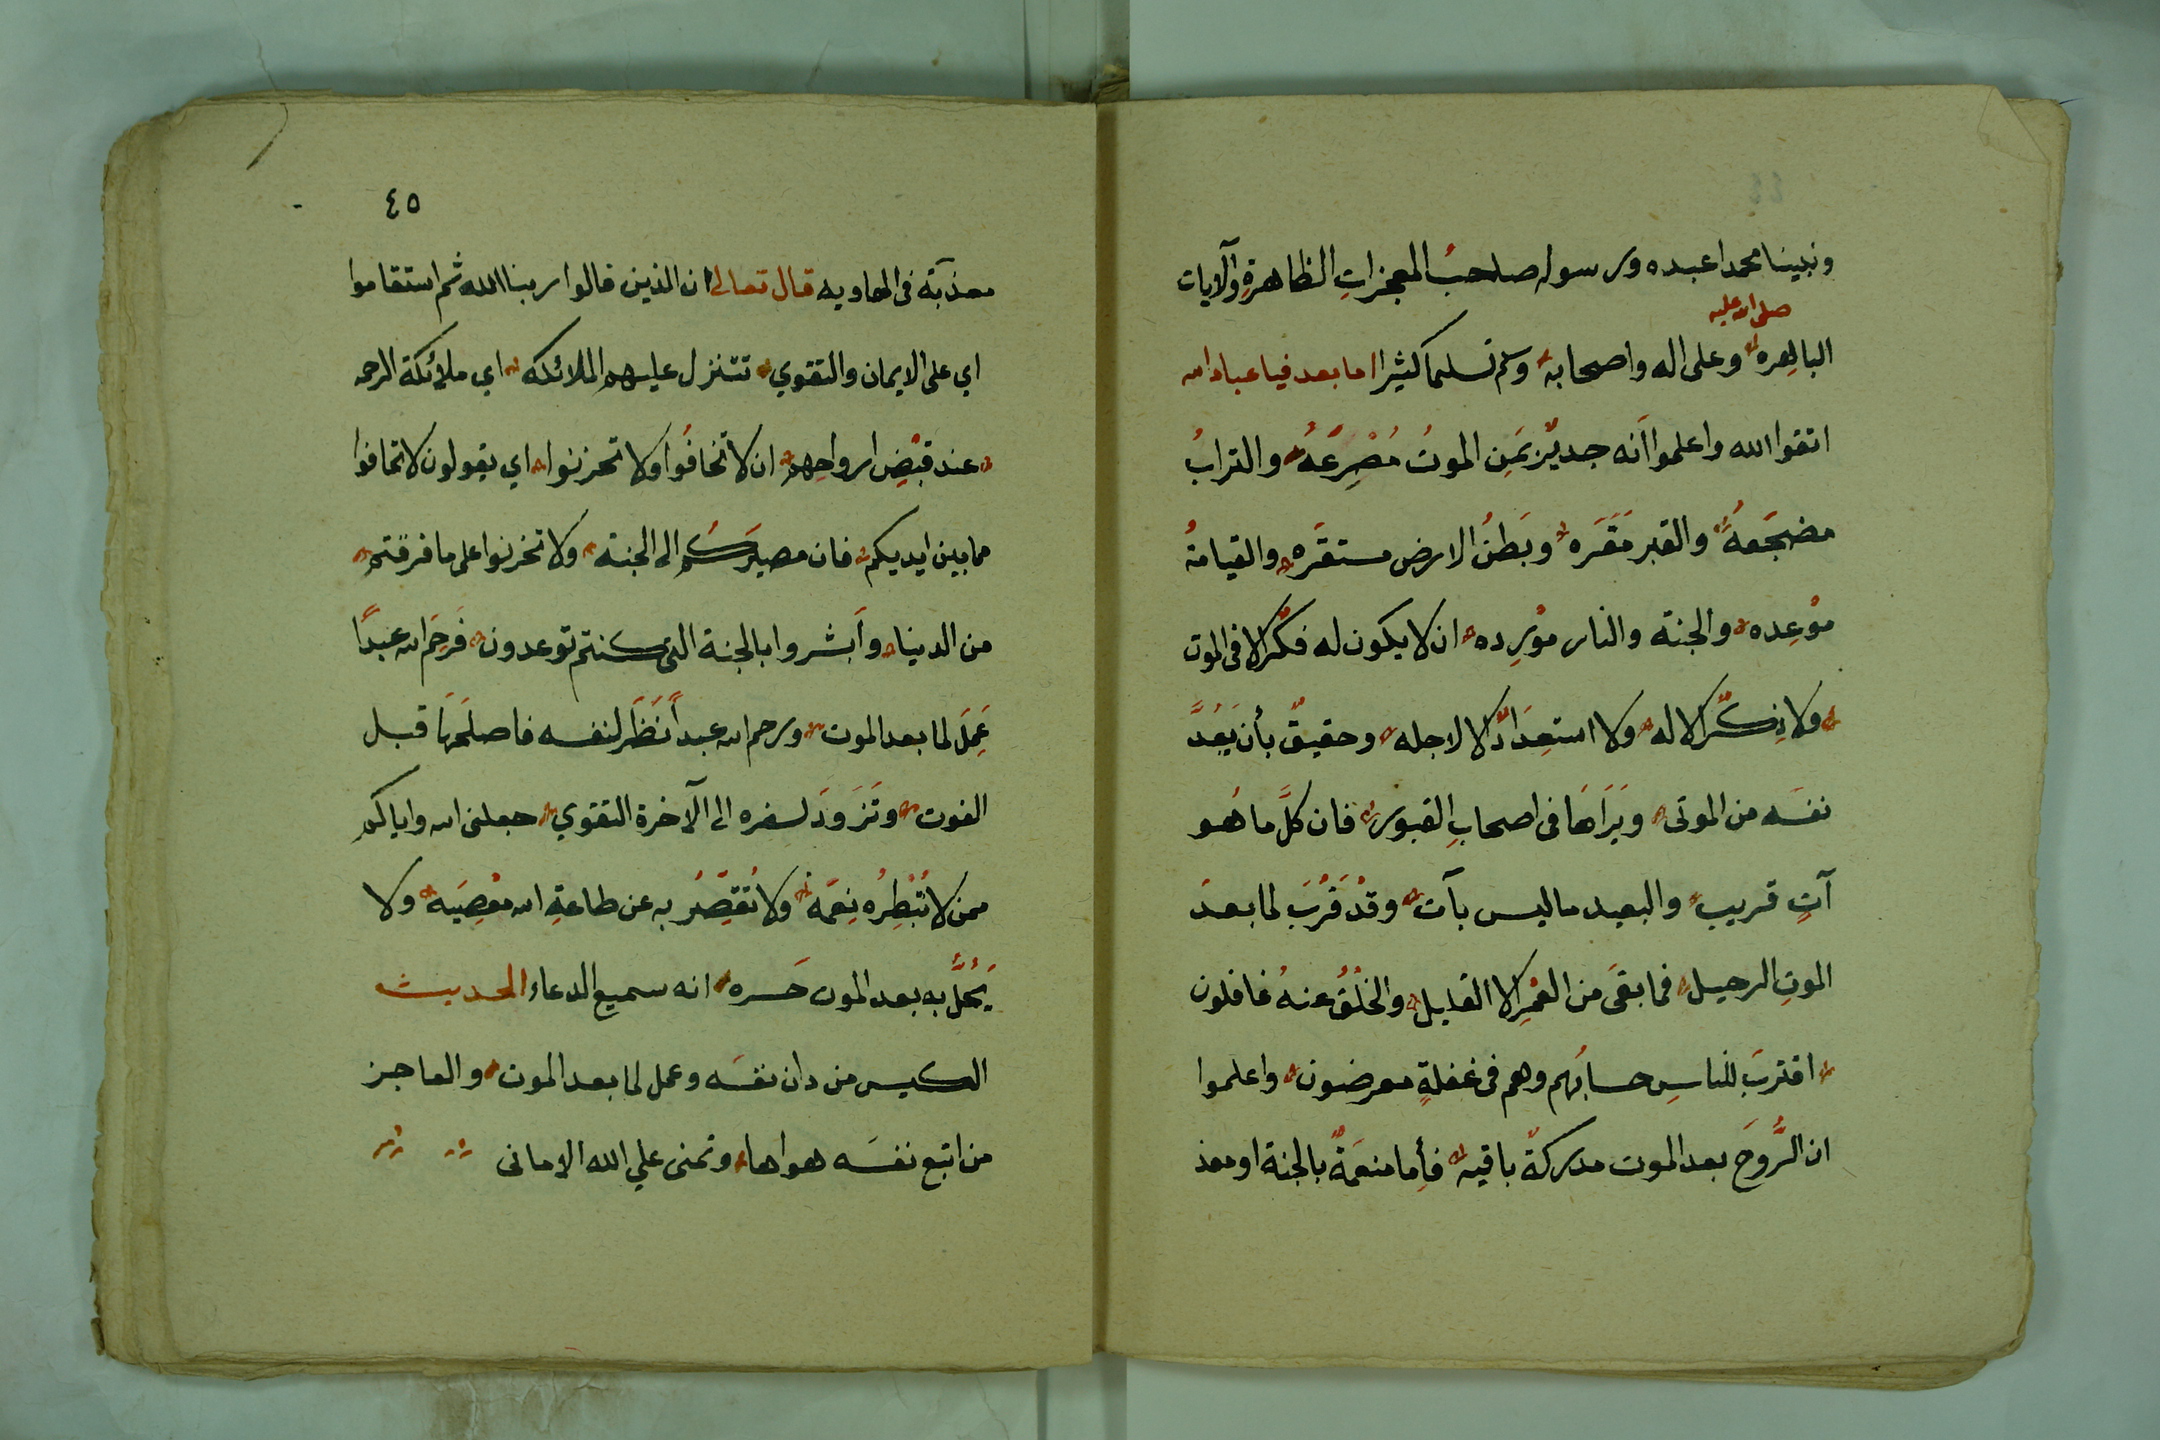 ونبينا محمدا عبده ورسوله صاحبُ المعجزاتِ الظاهرةِ والآيات
صلى الله عليه
الباهره وعلى اله واصحابه وسلم تسليما كثيرا اما بعد فيا عباد الله
اتقوا الله واعلموا أنه جديرٌ بمَنِ الموتُ مُصْرِعَهُ والترابُ
مضجَعهُ والقبر مَقَره وبَطنُ الارض مستقَره والقيامةُ
مَوْعِده والجنة والنار مَوْرِده ان لا يكون له فكْرٌ الا في الموت
ولا ذِكرٌ الا له ولا استعِدَادٌ الا لاجله وحقيقٌ بأن يَعُدَّ
نفسَه من الموتى ويَرَاهَا في اصحابِ القبور فان كلَّ ما هُو
آتٍ قريب والبعيد ما ليس بآت وقدْ قَرُبَ لما بعدَ
الموتِ الرحيل فما بقىَ من العُمْرِ الا القليل والخَلْقُ عنهُ غافلون
اقتربَ للناسِ حسابُهم وهم في غفلةٍ معرضون واعلموا
ان الرُّوحَ بعد الموت مدركةٌ باقيه فأما منعمَةٌ بالجنة او معذ
٤٥
معذبَة في الهاويه قال تعالى ان الذين قالوا ربنا الله ثم استقاموا
اي على الايمان والتقوي تتنزل عليهم الملائكه اي ملائكة الرحمه
عند قبْضِ ارواحِهم ان لا تخافُوا ولا تحزنوا اي يقولون لا تخافوا
مما بين ايديكم فان مصيرَكُم الى الجنة ولا تحزنوا على ما فرقتم
من الدينا وأبشروا بالجنة التى كنتم توعدون فَرحِمَ الله عبدًا
عَمِلَ لما بعد الموت ورحم الله عبداً نَظَرَ لنفسه فاصلَحَها قبل
الفوت وتَزَودَ لسفره الى الآخرة التقوي جعلنى الله واياكم
ممن لا تُبْطِرُه نِعَمَة ولا تُقَصِّرُ به عن طاعةِ الله معْصِيَه ولا
يَحُلُّ به بعد الموت حَسره انه سميع الدعاء الحديث
الكيس من دان نفسَه وعمل لما بعد الموت والعاجز
من اتبع نفسَه هواها وتمنى علي الله الامانى